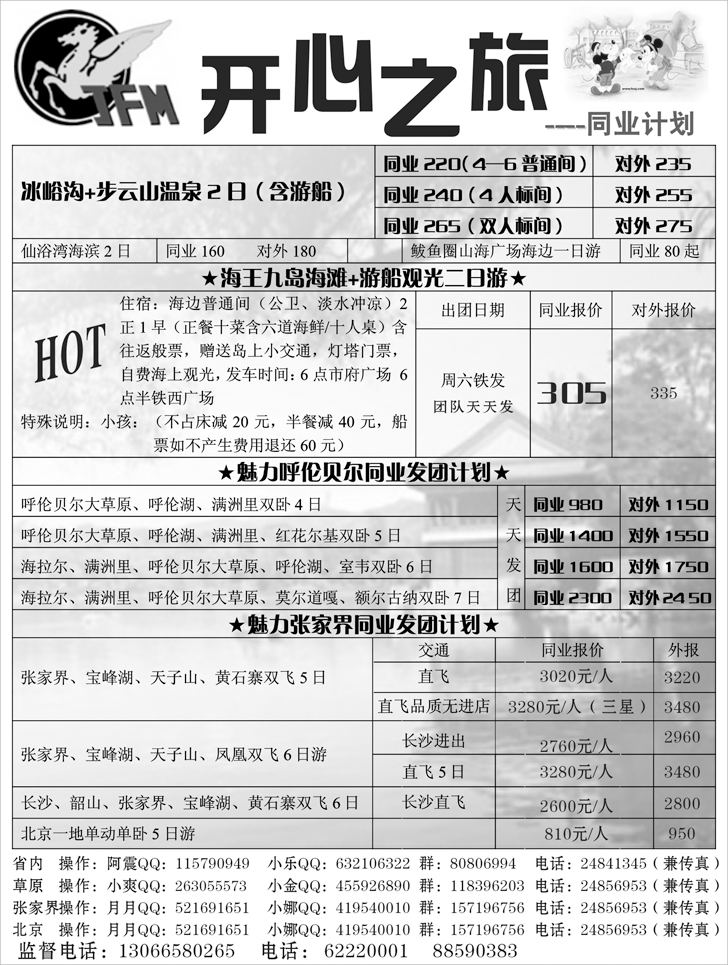 JFM
开心之旅
----同业计划
冰峪沟+步云山温泉2日（含游船）
同业 220（4—6普通间） 对外 235
同业 240（4人标间） 对外 255
同业 265（双人标间） 对外 275
仙浴湾海滨2日 同业 160 对外 180 鲅鱼圈山海广场海边一日游 同业 80 起
★海王九岛海滩+游船观光二日游★
HOT
住宿：海边普通间（公卫、淡水冲凉）2
正1早（正餐十菜含六道海鲜/十人桌）含
往返般票，赠送岛上小交通，灯塔门票，
自费海上观光，发车时间：6点市府广场 6
点半铁西广场
特殊说明：小孩：（不占床减 20 元，半餐减 40 元，船
票如不产生费用退还 60 元）
出团日期 同业报价 对外报价
周六铁发
团队天天发
305 335
★魅力呼伦贝尔同业发团计划★
呼伦贝尔大草原、呼伦湖、满洲里双卧4日 同业 980 对外 1150
呼伦贝尔大草原、呼伦湖、满洲里、红花尔基双卧5日 同业 1400 对外 1550
海拉尔、满洲里、呼伦贝尔大草原、呼伦湖、室韦双卧6日 同业 1600 对外 1750
海拉尔、满洲里、呼伦贝尔大草原、莫尔道嘎、额尔古纳双卧7日 同业 2300 对外 2450
天天发团
★魅力张家界同业发团计划★
交通 同业报价 外报
张家界、宝峰湖、天子山、黄石寨双飞5日 直飞 3020元/人 3220
直飞品质无进店 3280元/人（三星） 3480
张家界、宝峰湖、天子山、凤凰双飞6日游 长沙进出 2760元/人 2960
直飞5日 3280元/人 3480
长沙、韶山、张家界、宝峰湖、黄石寨双飞6日 长沙直飞 2600元/人 2800
北京一地单动单卧5日游 810元/人 950
省内 操作：阿震QQ：115790949 小乐QQ：632106322 群：80806994 电话：24841345（兼传真）
草原 操作：小爽QQ：263055573 小金QQ：455926890 群：118396203 电话：24856953（兼传真）
张家界操作：月月QQ：521691651 小娜QQ：419540010 群：157196756 电话：24856953（兼传真）
北京 操作：月月QQ：521691651 小娜QQ：419540010 群：157196756 电话：24856953（兼传真）
监督电话：13066580265 电话：62220001 88590383